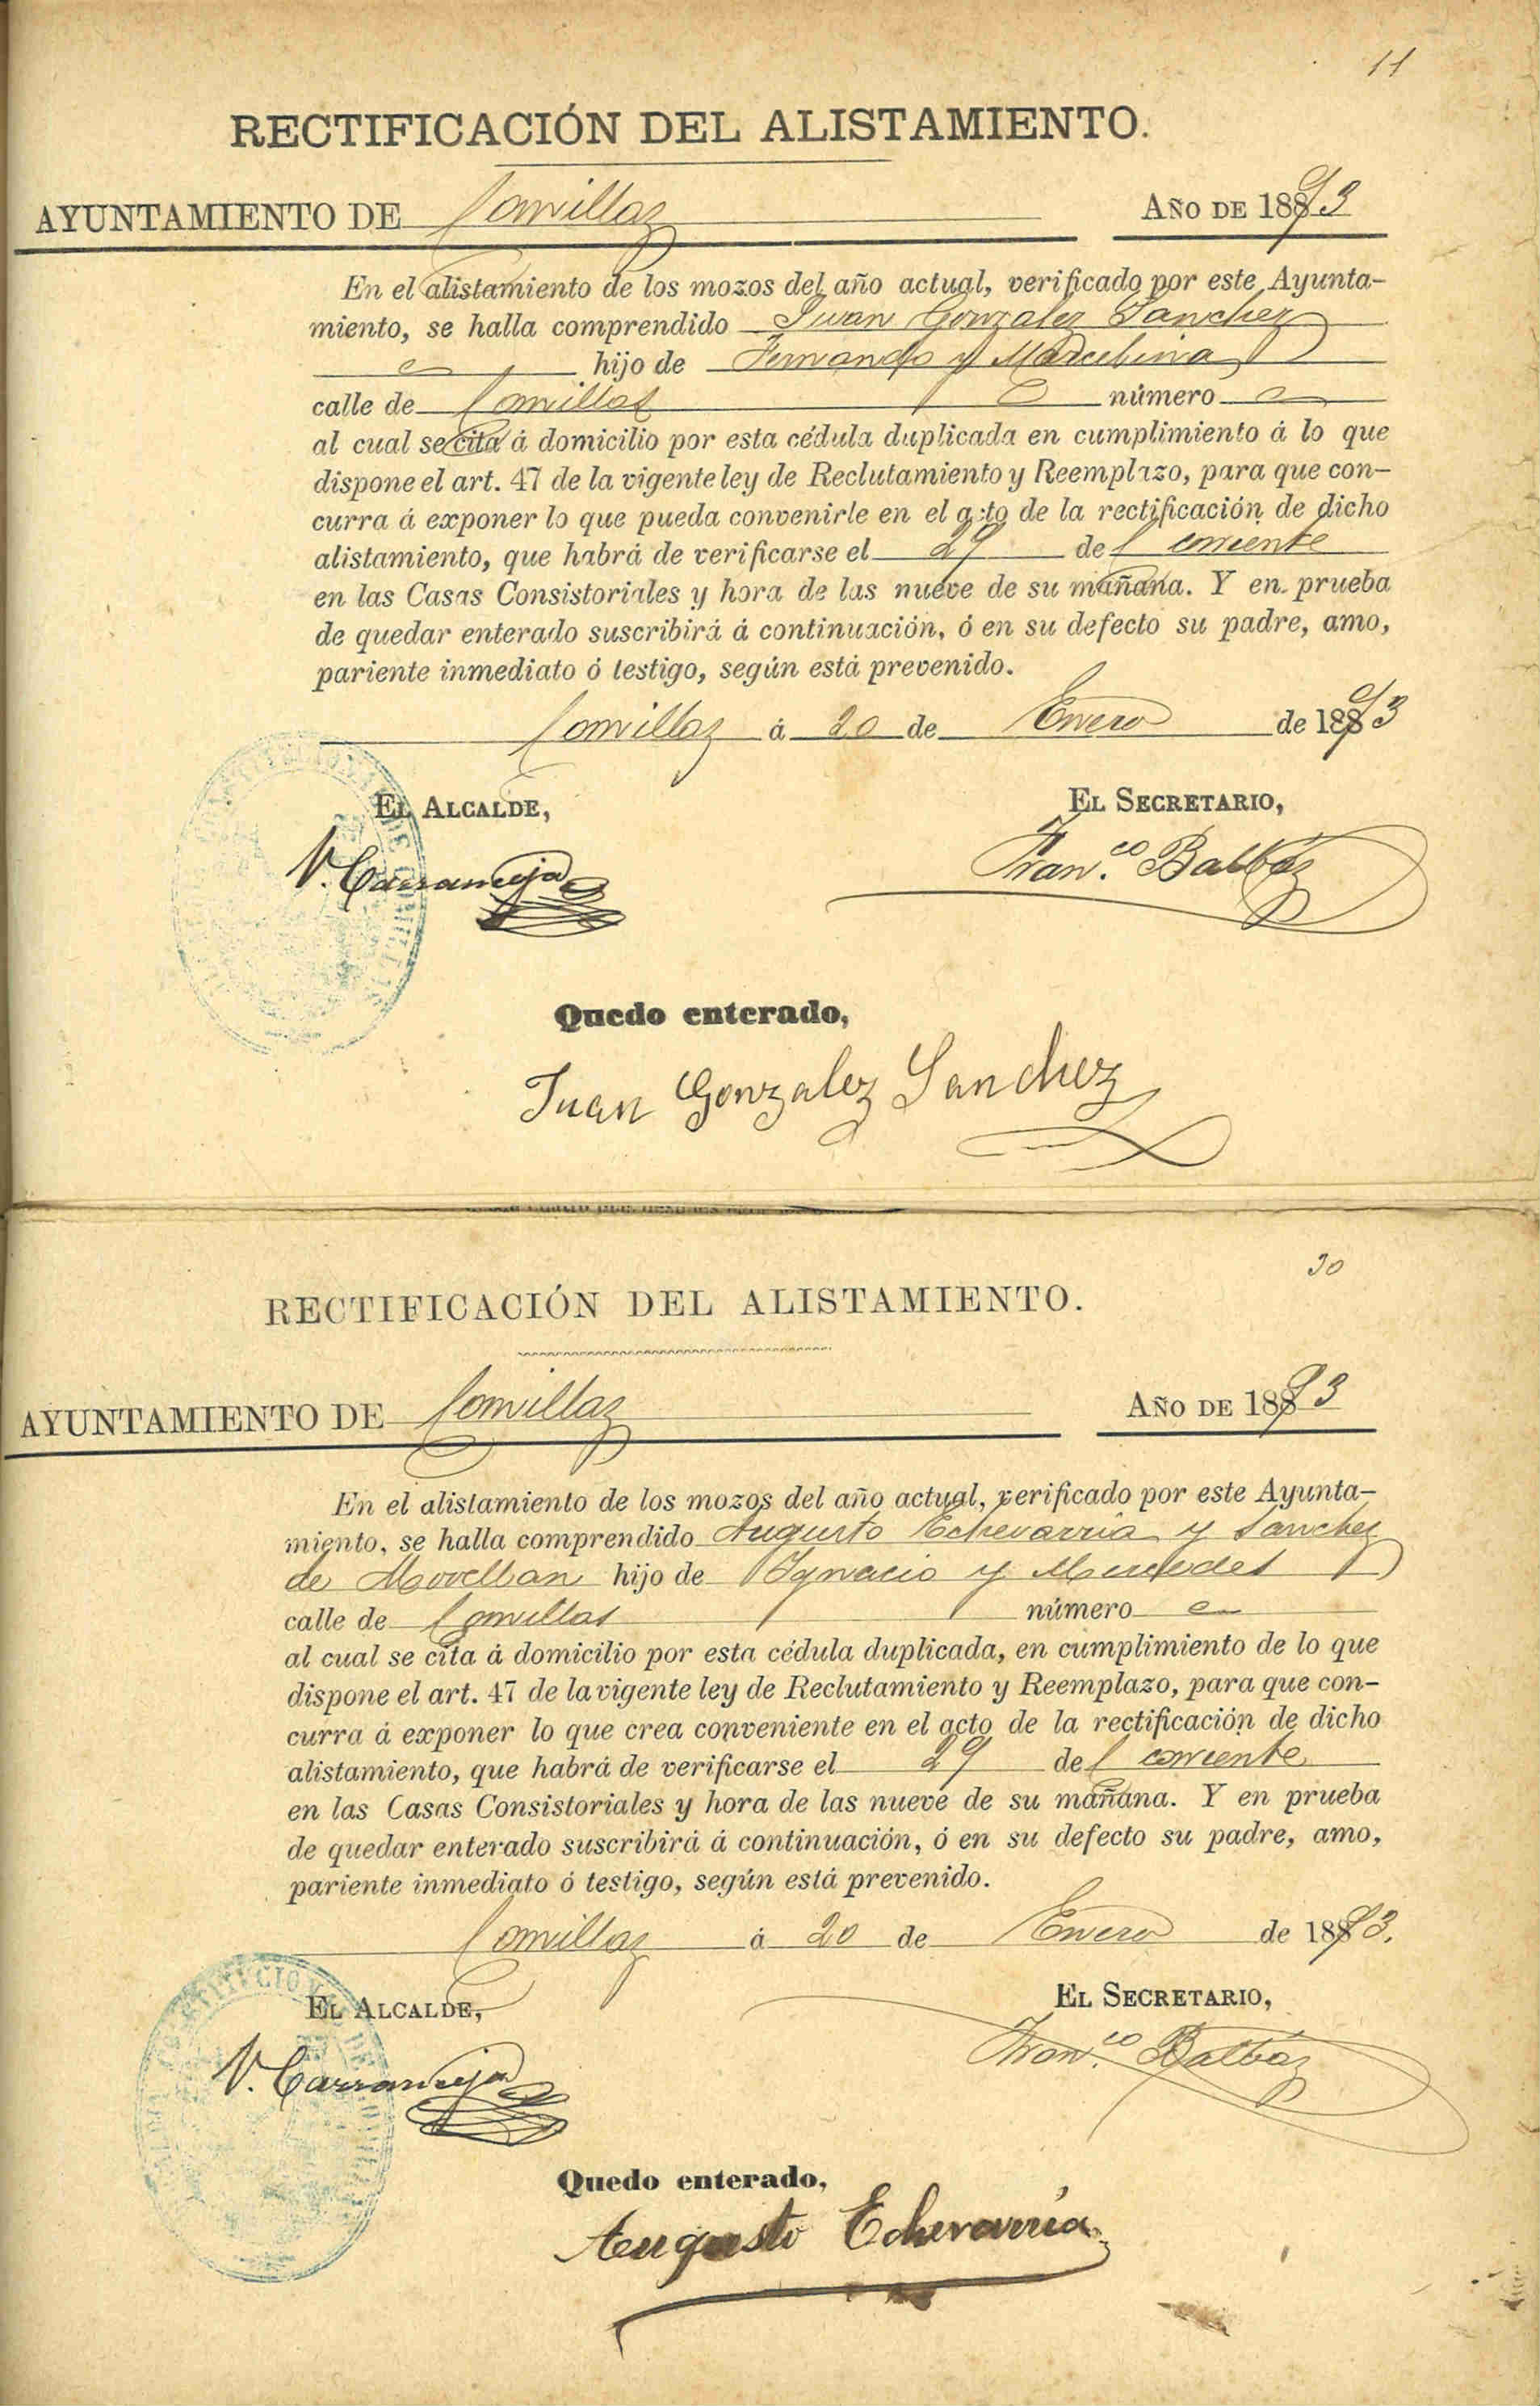 11
RECTIFICACIÓN DEL ALISTAMIENTO.
AYUNTAMIENTO DE Comillas AÑO DE 1893
En el alistamiento de los mozos del año actual, verificado por este Ayunta-
miento, se halla comprendido Juan Gonzalez Sanchez
hijo de Fernando y Marcelina
calle de Comillas número
al cual se cita á domicilio por esta cédula duplicada en cumplimiento á lo que
dispone el art. 47 de la vigente ley de Reclutamiento y Reemplazo, para que con-
curra á exponer lo que pueda convenirle en el acto de la rectificación de dicho
alistamiento, que habrá de verificarse el 29 del corriente
en las Casas Consistoriales y hora de las nueve de su mañana. Y en prueba
de quedar enterado suscribirá á continuación, ó en su defecto su padre, amo,
pariente inmediato ó testigo, según está prevenido.
Comillas á 20 de Enero de 1893
EL ALCALDE, EL SECRETARIO,
V. Carranceja Fran.co Balbás
Quedo enterado,
Juan Gonzalez Sanchez
30
RECTIFICACIÓN DEL ALISTAMIENTO.
AYUNTAMIENTO DE Comillas AÑO DE 1893
En el alistamiento de los mozos del año actual, verificado por este Ayunta-
miento, se halla comprendido Augusto Echevarria y Sanchez
de Movellan hijo de Ygnacio y Mercedes
calle de Comillas número
al cual se cita á domicilio por esta cédula duplicada, en cumplimiento de lo que
dispone el art. 47 de la vigente ley de Reclutamiento y Reemplazo, para que con-
curra á exponer lo que crea conveniente en el acto de la rectificación de dicho
alistamiento, que habrá de verificarse el 29 del corriente
en las Casas Consistoriales y hora de las nueve de su mañana. Y en prueba
de quedar enterado suscribirá á continuación, ó en su defecto su padre, amo,
pariente inmediato ó testigo, según está prevenido.
Comillas á 20 de Enero de 1893.
EL ALCALDE, EL SECRETARIO,
V. Carranceja Fran.co Balbás
Quedo enterado,
Augusto Echevarría